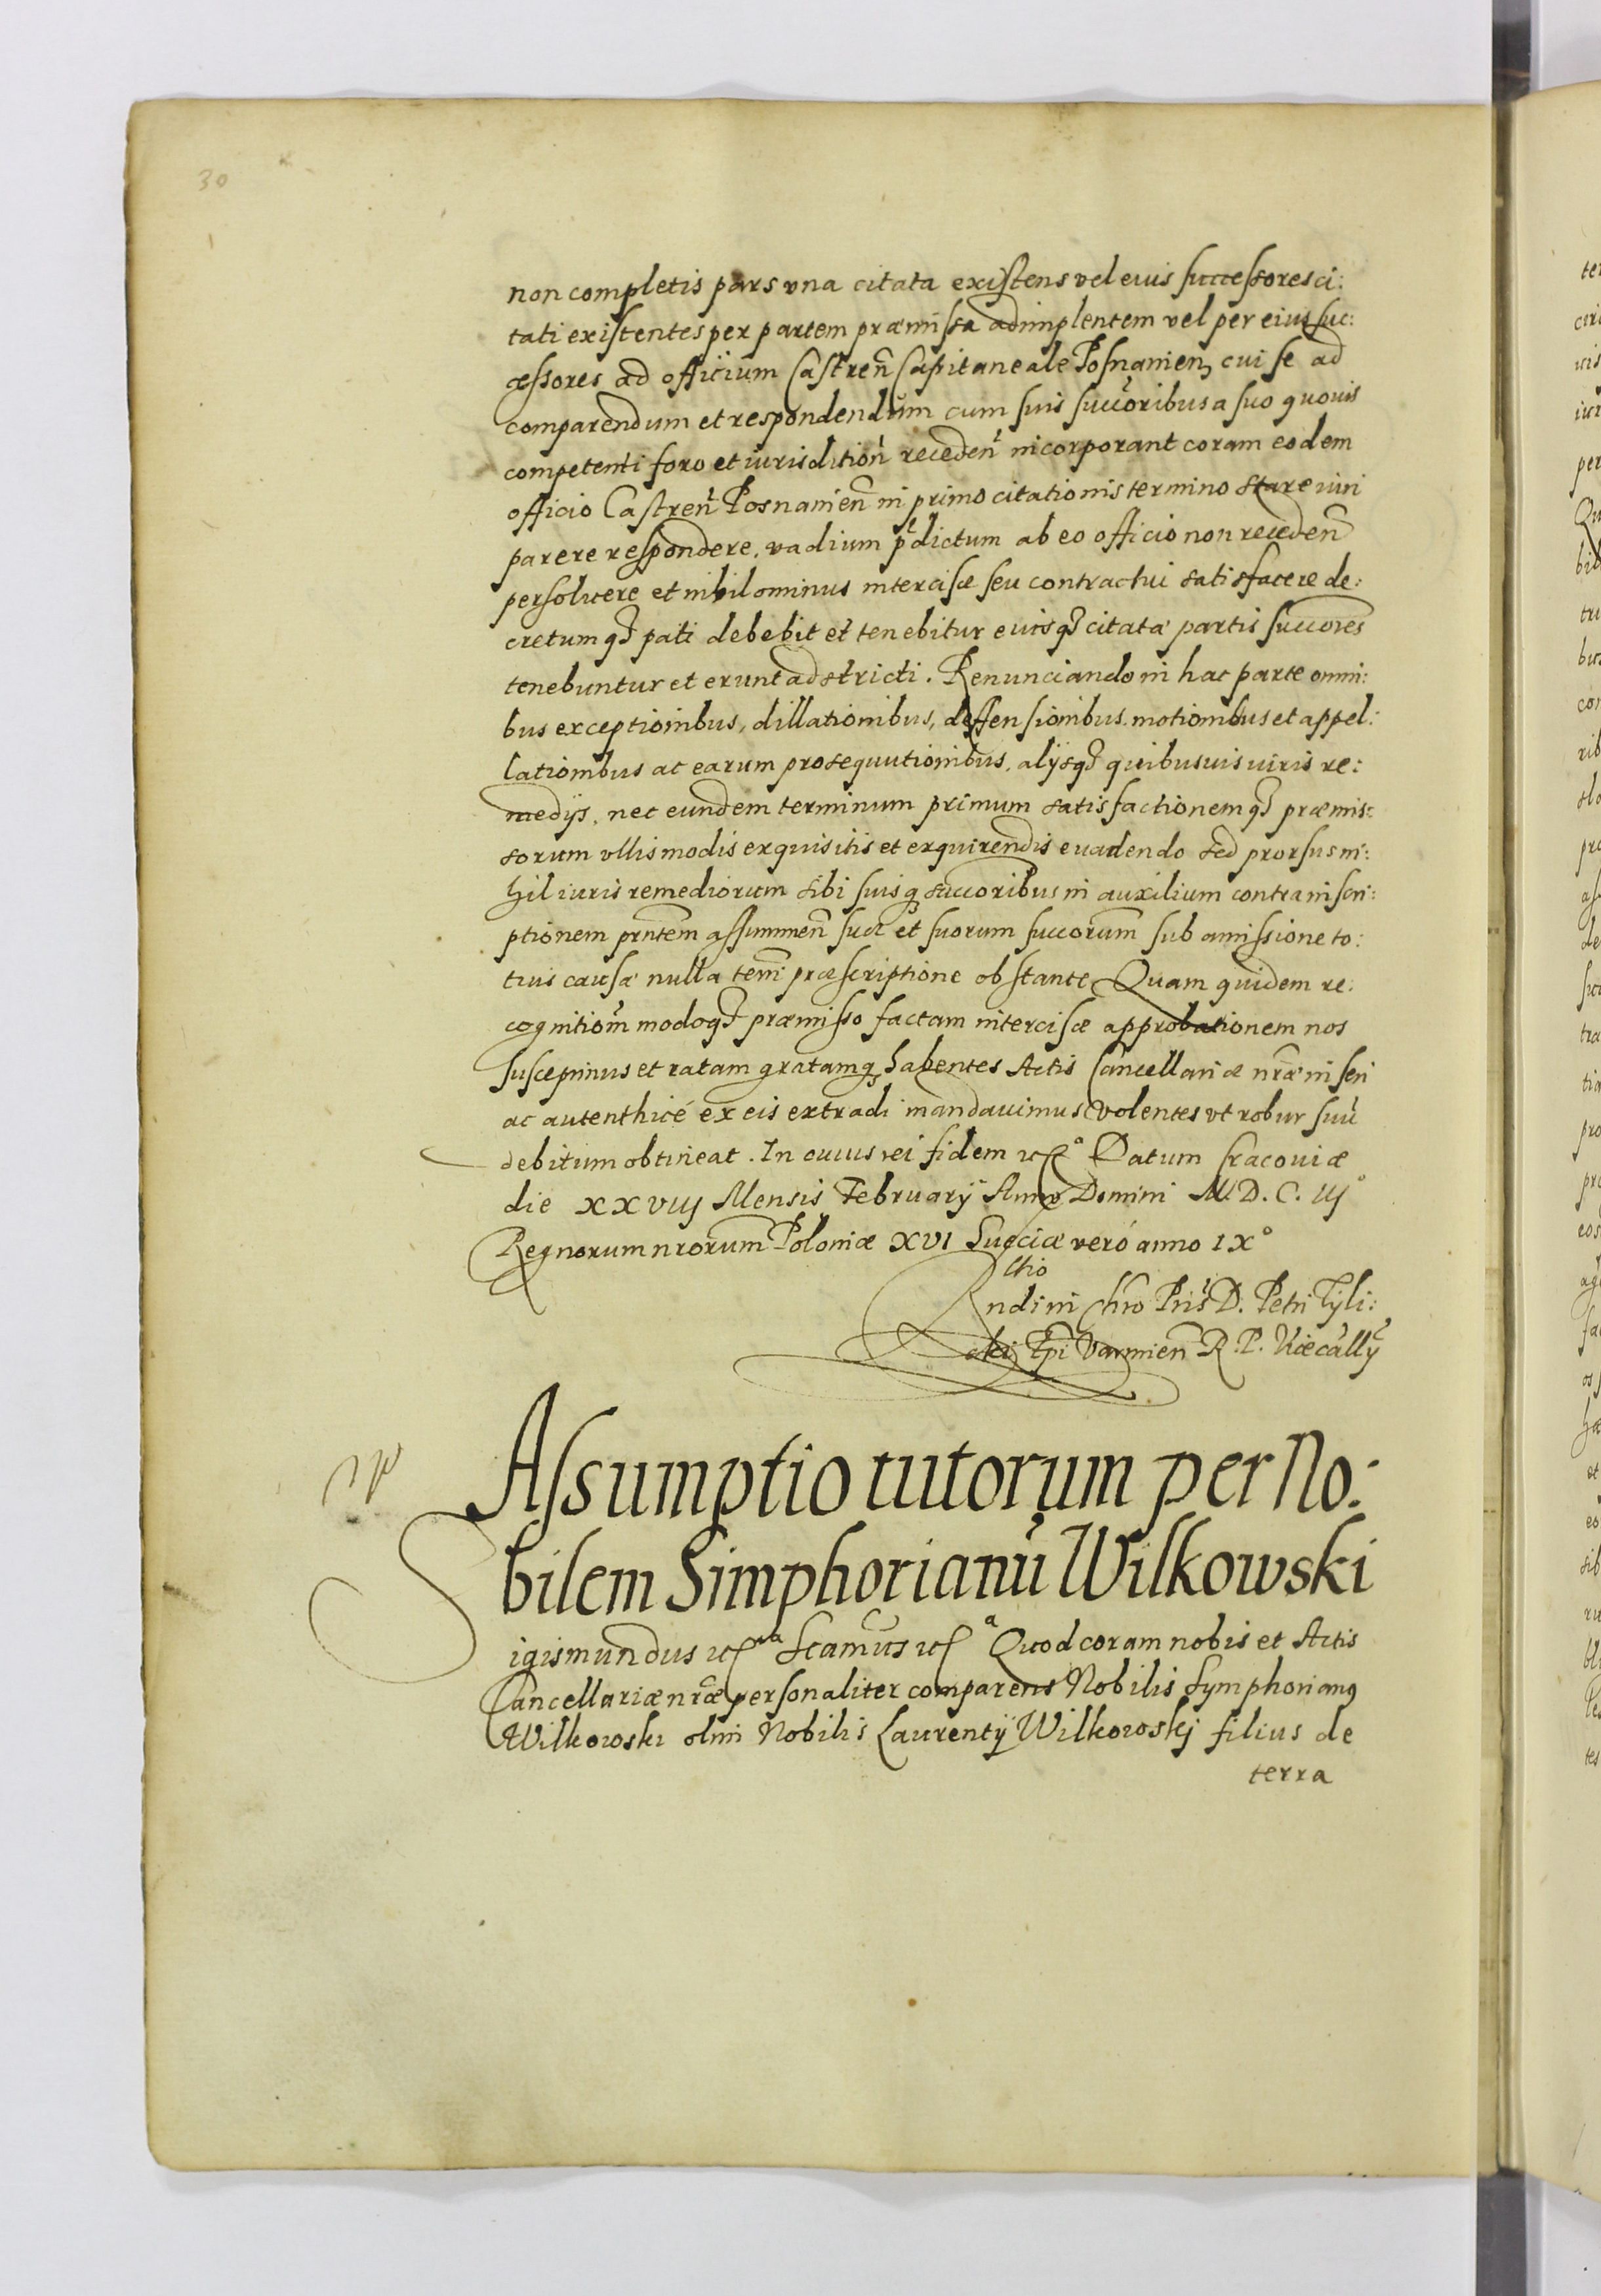 30
non completis pars vna citata existens vel euis successores ci:
tati existentes per partem præmissa adimplentem vel per eius suc:
æssores ad officium Castren̄ Capitaneale Posnanien, cui se ad
comparendum et respondendum cum suis succoribus a suo quouis
competenti foro et iurisdition̄ receden̄ incorporant coram eodem
officio Castren̄ Posnanien̄ in primo citationis termino stare iuri
parere respondere, vadium p̄dictum ab eo officio non receden̄
persoluere et nihilominus intercisæ seu contractui satisfacere de:
cretumq; pati debebit et tenebitur euisq; citatæ partis succores
tenebuntur et erunt adstricti. Renunciando in hac parte omni:
bus exceptionibus, dillationibus, deffensionibus. motionibus et appel:
lationibus ac earum prosequutionibus, alijsq; quibusuis iuris re:
medijs, nec eundem terminum primum satisfactionemq; præmis:
sorum vllis modis exquisitis et exquirendis euadendo sed prorsus ni:
hil iuris remediorum sibi suisq; succoribus in auxilium contra inscri:
ptionem prntem assummen̄ suā et suorum succorum sub amissione to:
tius causæ nulla tem̄ præscriptione obstante Quam quidem re:
cognition̄m modoq; præmisso factam intercisæ approbationem nos
suscepimus et ratam gratamq; habentes Actis Cancellariæ nr̄æ inseri
ac autenthicé ex eis extradi mandauimus volentes vt robur suū
debitum obtineat. In cuius rei fidem etc° Datum Cracouiæ
die XXVIII Mensis Februarij Anno Domini M.D.C. IIJ°
Regnorum nrorum Poloniæ XVI Sueciæ veró anno IX°
ctio
Rndi in Chro Pris D. Petri Tyli:
cki Epi Varmien̄ R. P. Vicecally
Assumptio tutorum per No:
bilem Simphorianū Wilkowski
Sigismundus etc ra Scamus etc a Quod coram nobis et Actis
Cancellariæ nr̄æ personaliter comparens Nobilis Symphorianq
Wilkowski olim Nobilis Laurentij Wilkowskj filius de
terra